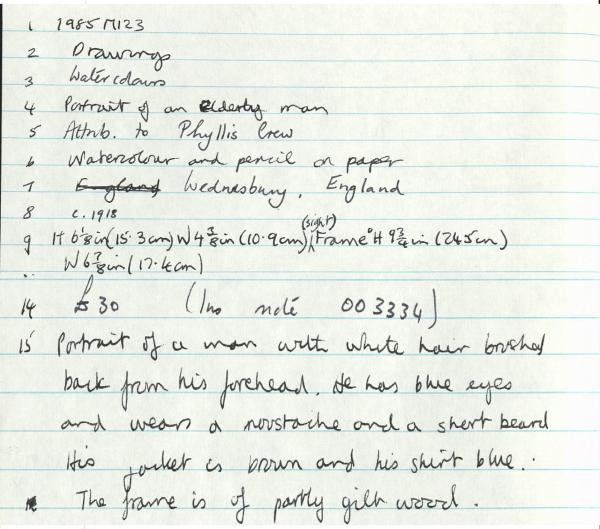 1 1985 M123
2 Drawings
3 Watercolours
4 Portrait of an elderly man
5 Attrib. to Phyllis Crew
6 Watercolour and pencil on paper
7 England Wednesbury, England
8 c. 1918
9 H 6 1/8 in (15.3cm) W 4 3/8 in (10.9cm) (sight) Frame: H 9 3/4 in (24.5cm)
W 6 7/8 in (17.4cm)
14 £30 (Ins note 003334)
15 Portrait of a man with white hair brushed
back from his forehead. He has blue eyes
and wears a moustache and a short beard
His jacket is brown and his shirt blue.
The frame is of partly gilt wood.